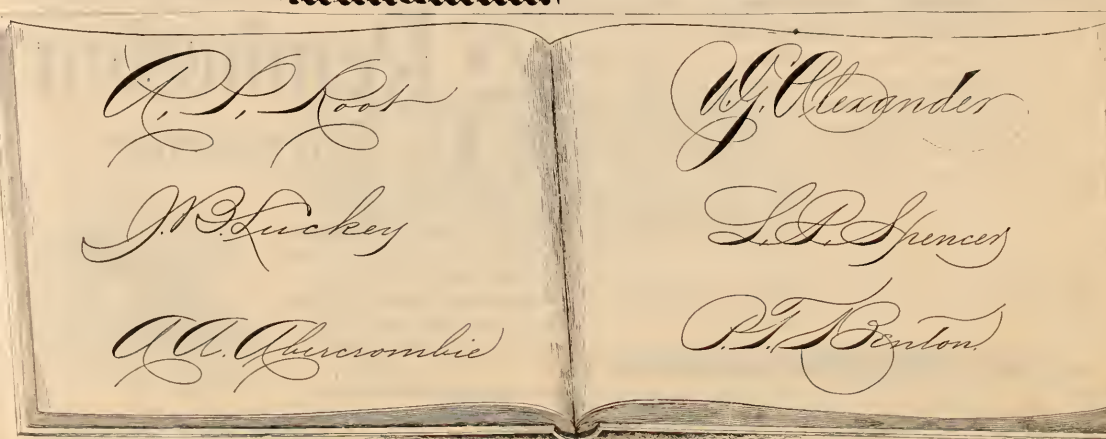 A. P. Root
J. B. Luckey
A. A. Abercrombie
A. G. Alexander
L. P. Spencer
P. T. Benton.